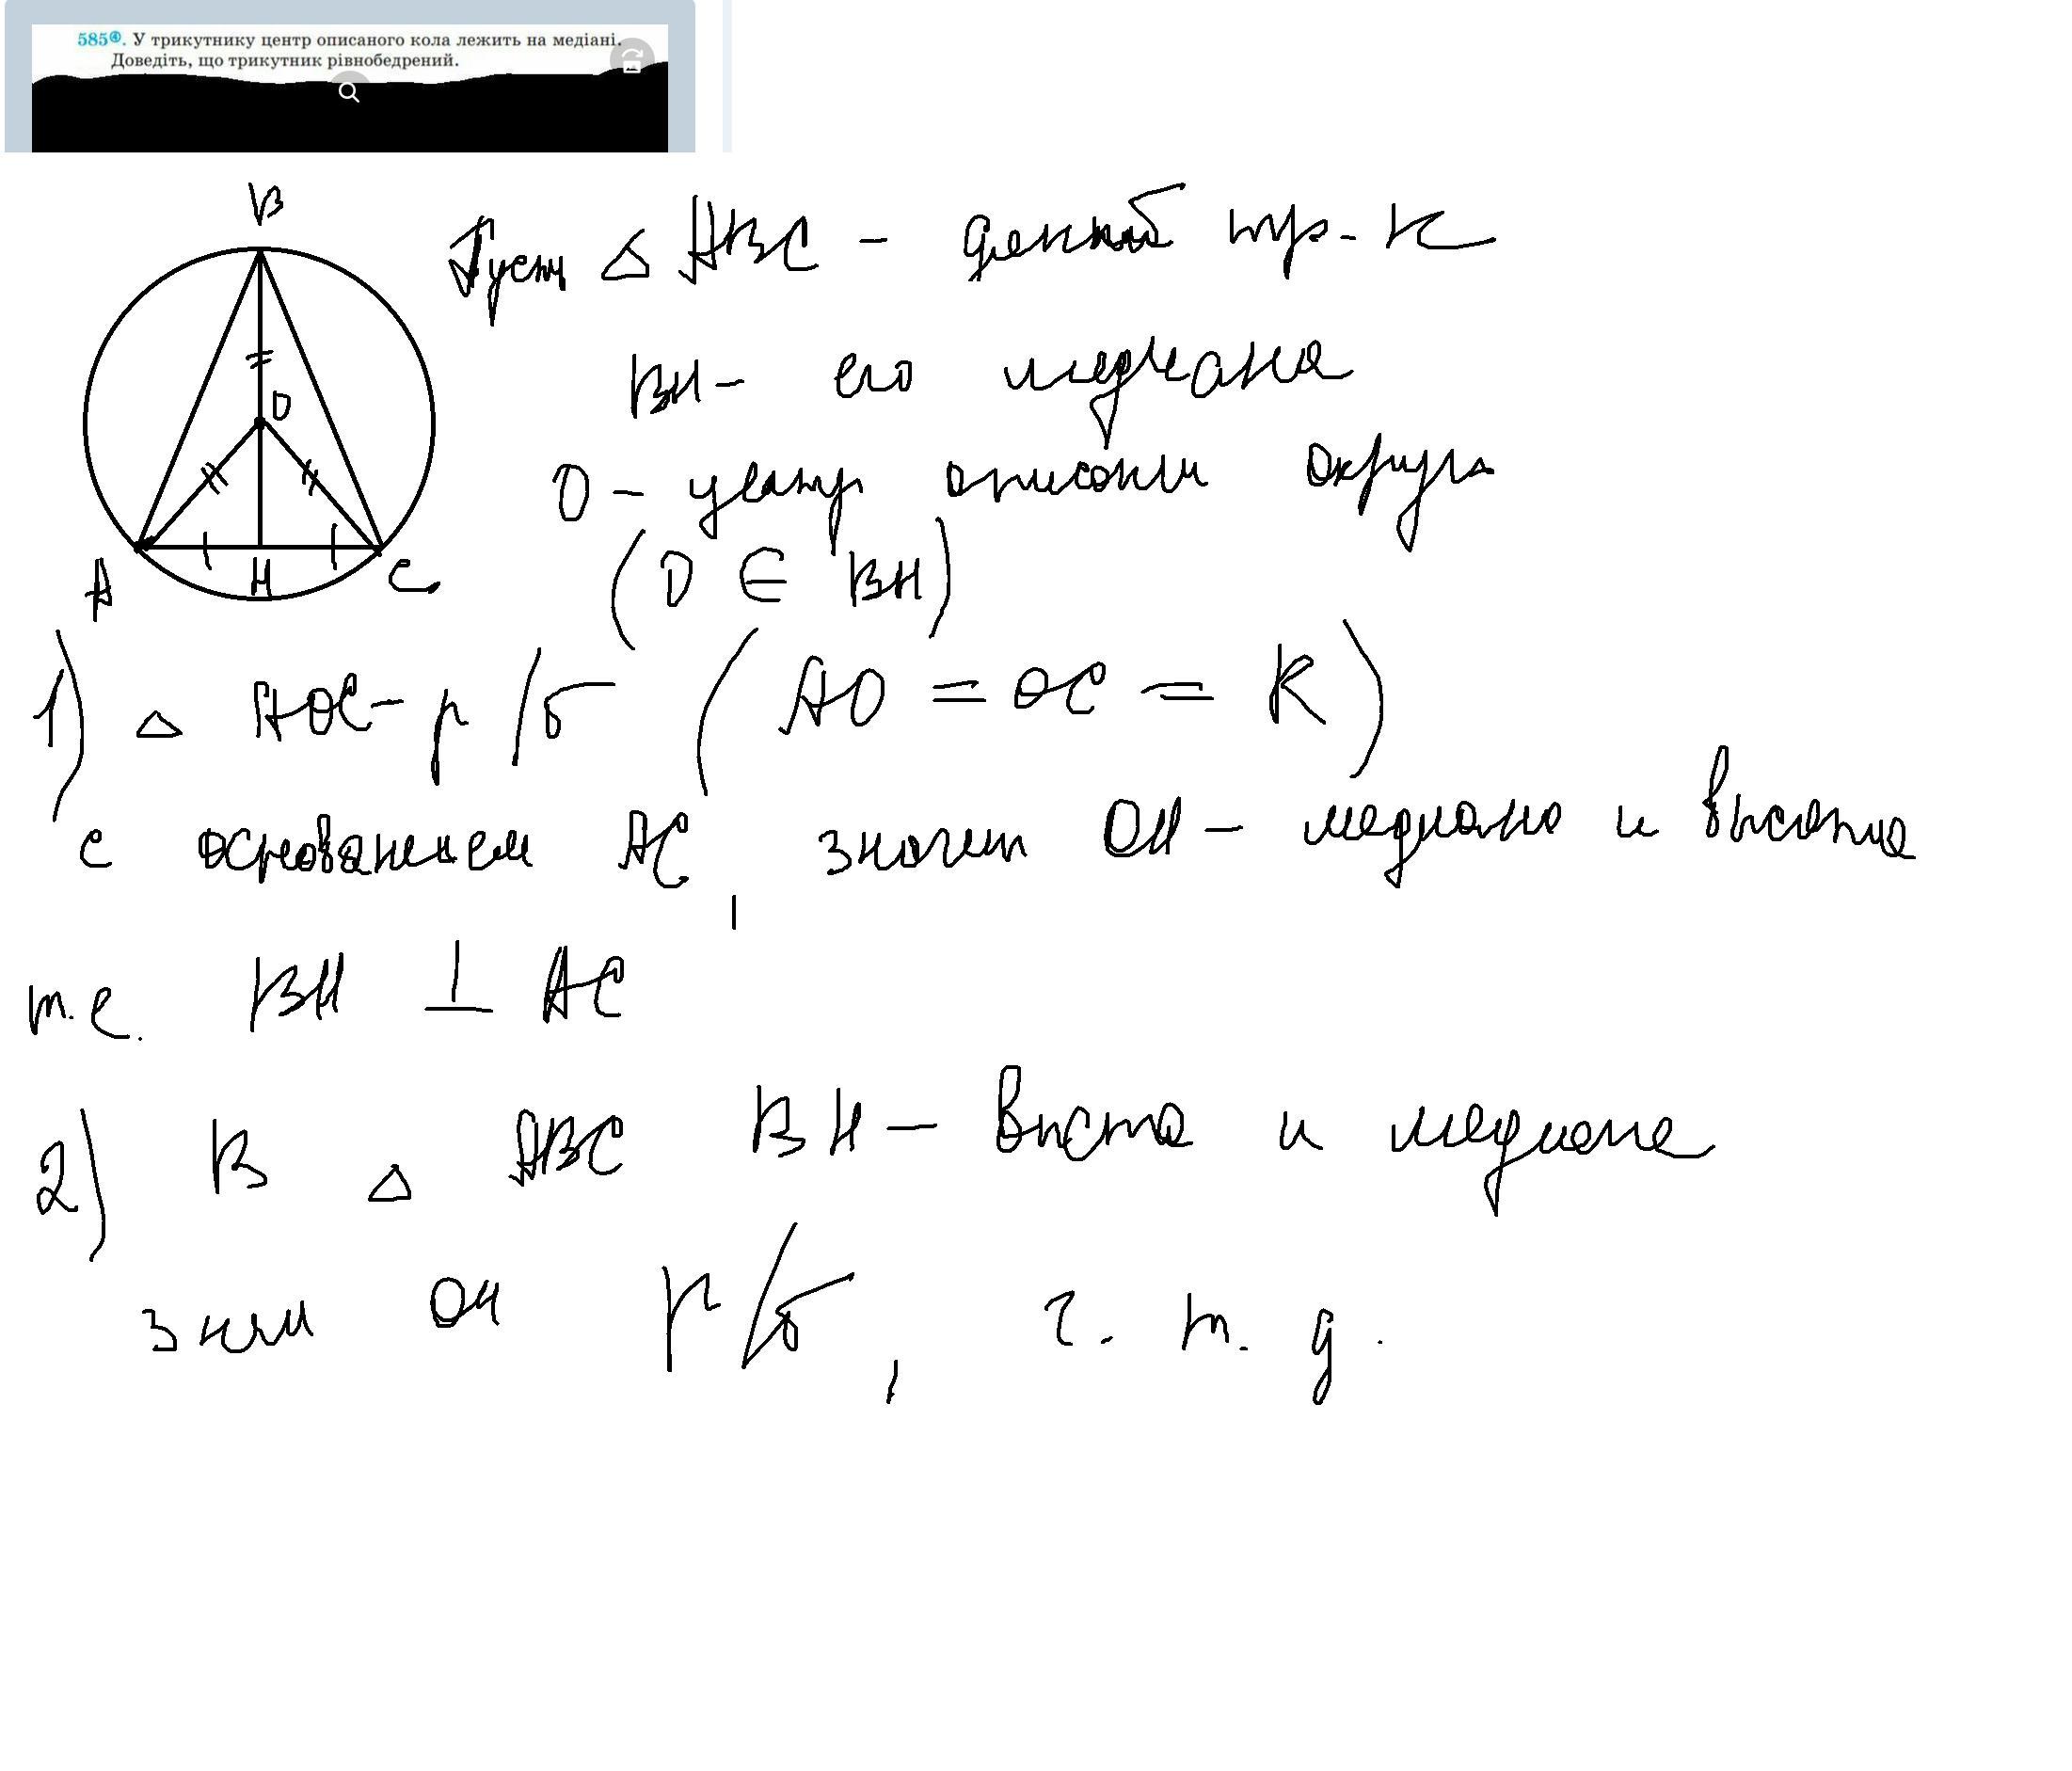 585④. У трикутнику центр описаного кола лежить на медіані.
Доведіть, що трикутник рівнобедрений.
B
Пусть △ ABC - данный тр-к
BH - его медиана
O
O - центр описанн окружн
(O ∈ BH)
A H C
1) △ AOC - р/б (AO = OC = R)
с основанием AC, значит OH - медиана и высота
т.е. BH ⊥ AC
2) В △ ABC BH - высота и медиана
знач он р/б, ч. т. д.